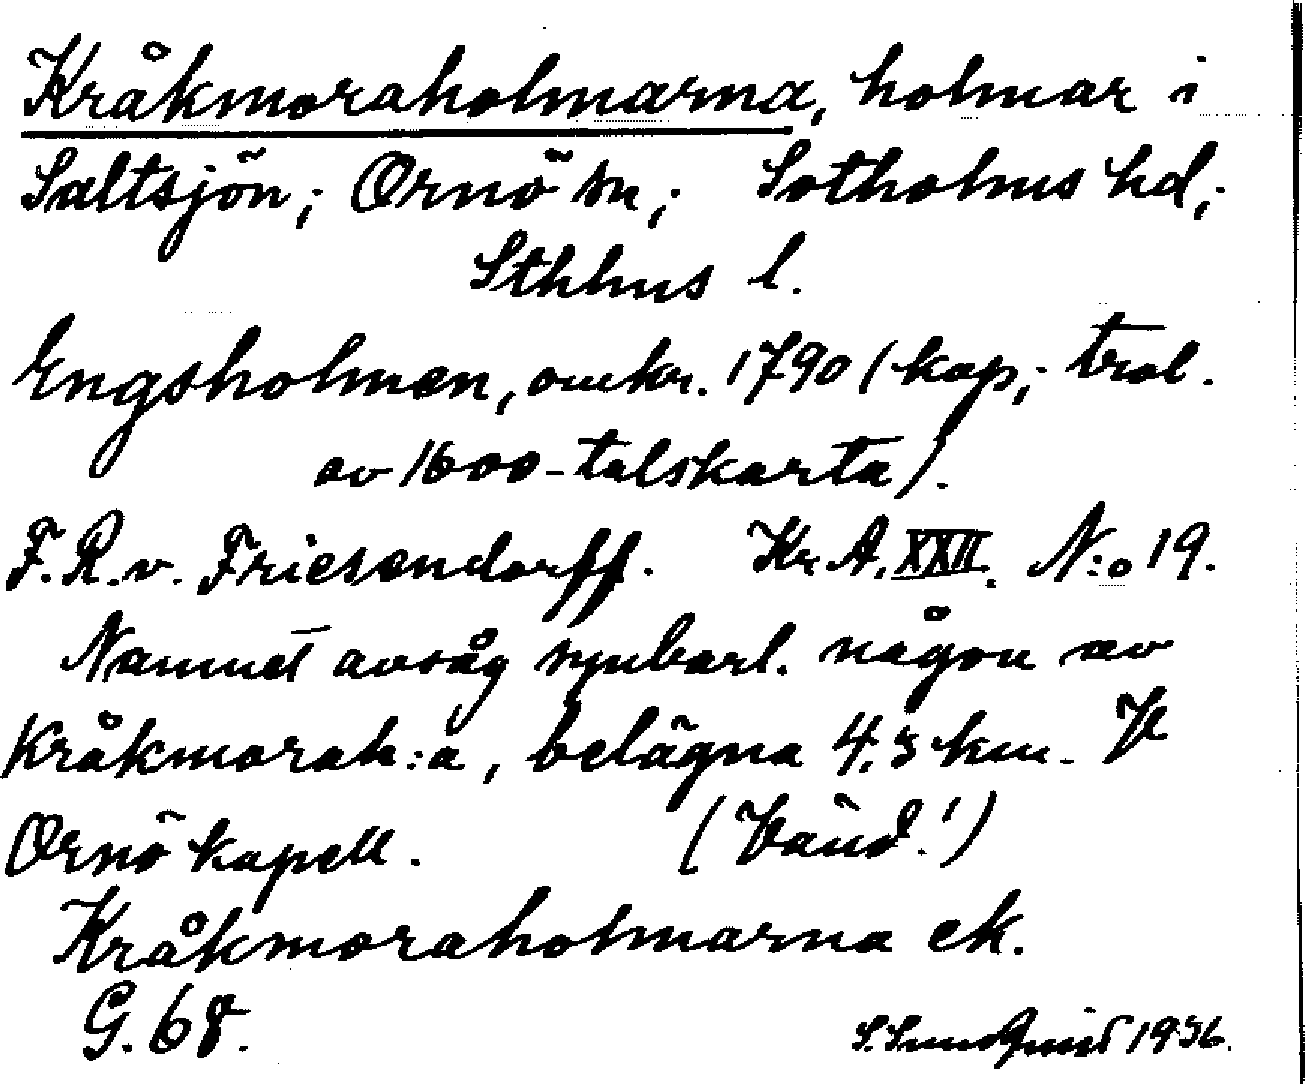 Kråkmoraholmarna, holmar i
Saltsjön; Ornö sn; Sotholms hd;
Sthlms l.
Engsholmen, omkr. 1790 (kop; trol.
av 1600-talskarta).
F. R. v. Friesendorff. Kr. A. XXII. N:o 19.
Namnet avsåg synbarl. någon av
Kråkmorah:a, belägna 4.5 km. V
Ornö kapell. (Vänd!)
Kråkmoraholmarna ek.
G. 68.
S. Sundquist 1936.